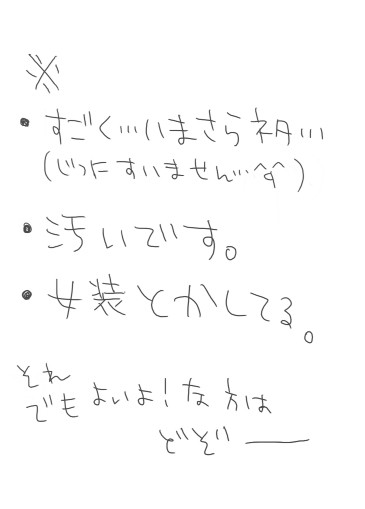 ※
・すごく…いまさらネタ…
(じつにすいません…^^)
・汚いです。
・女装とかしてる。
それ
でもよいよ!な方は
どぞ――